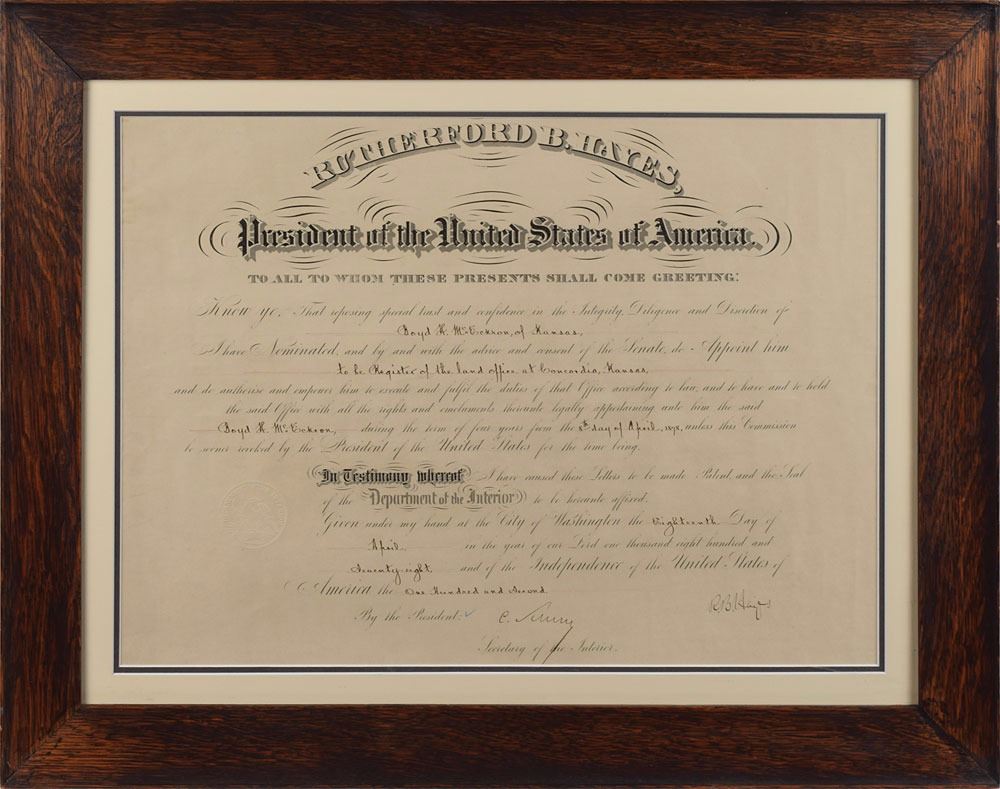 RUTHERFORD B. HAYES,
President of the United States of America.
TO ALL TO WHOM THESE PRESENTS SHALL COME GREETING:
Know ye. That reposing special trust and confidence in the Integrity, Diligence and Discretion of
Boyd H. McEckron, of Kansas,
I have Nominated, and by and with the advice and consent of the Senate, do Appoint him
to be Register of the land office at Concordia, Kansas,
and do authorise and empower him to execute and fulfil the duties of that Office according to law, and to have and to hold
the said Office with all the rights and emoluments thereunto legally appertaining unto him the said
Boyd H. McEckron, during the term of four years from the 8th day of April, 1878, unless this Commission
be sooner revoked by the President of the United States for the time being.
In Testimony whereof I have caused these Letters to be made Patent, and the Seal
of the Department of the Interior to be hereunto affixed.
Given under my hand at the City of Washington the Eighteenth Day of
April in the year of our Lord one thousand eight hundred and
Seventy-eight and of the Independence of the United States of
America the One Hundred and Second.
R.B. Hayes
By the President: C. Schurz
Secretary of the Interior.